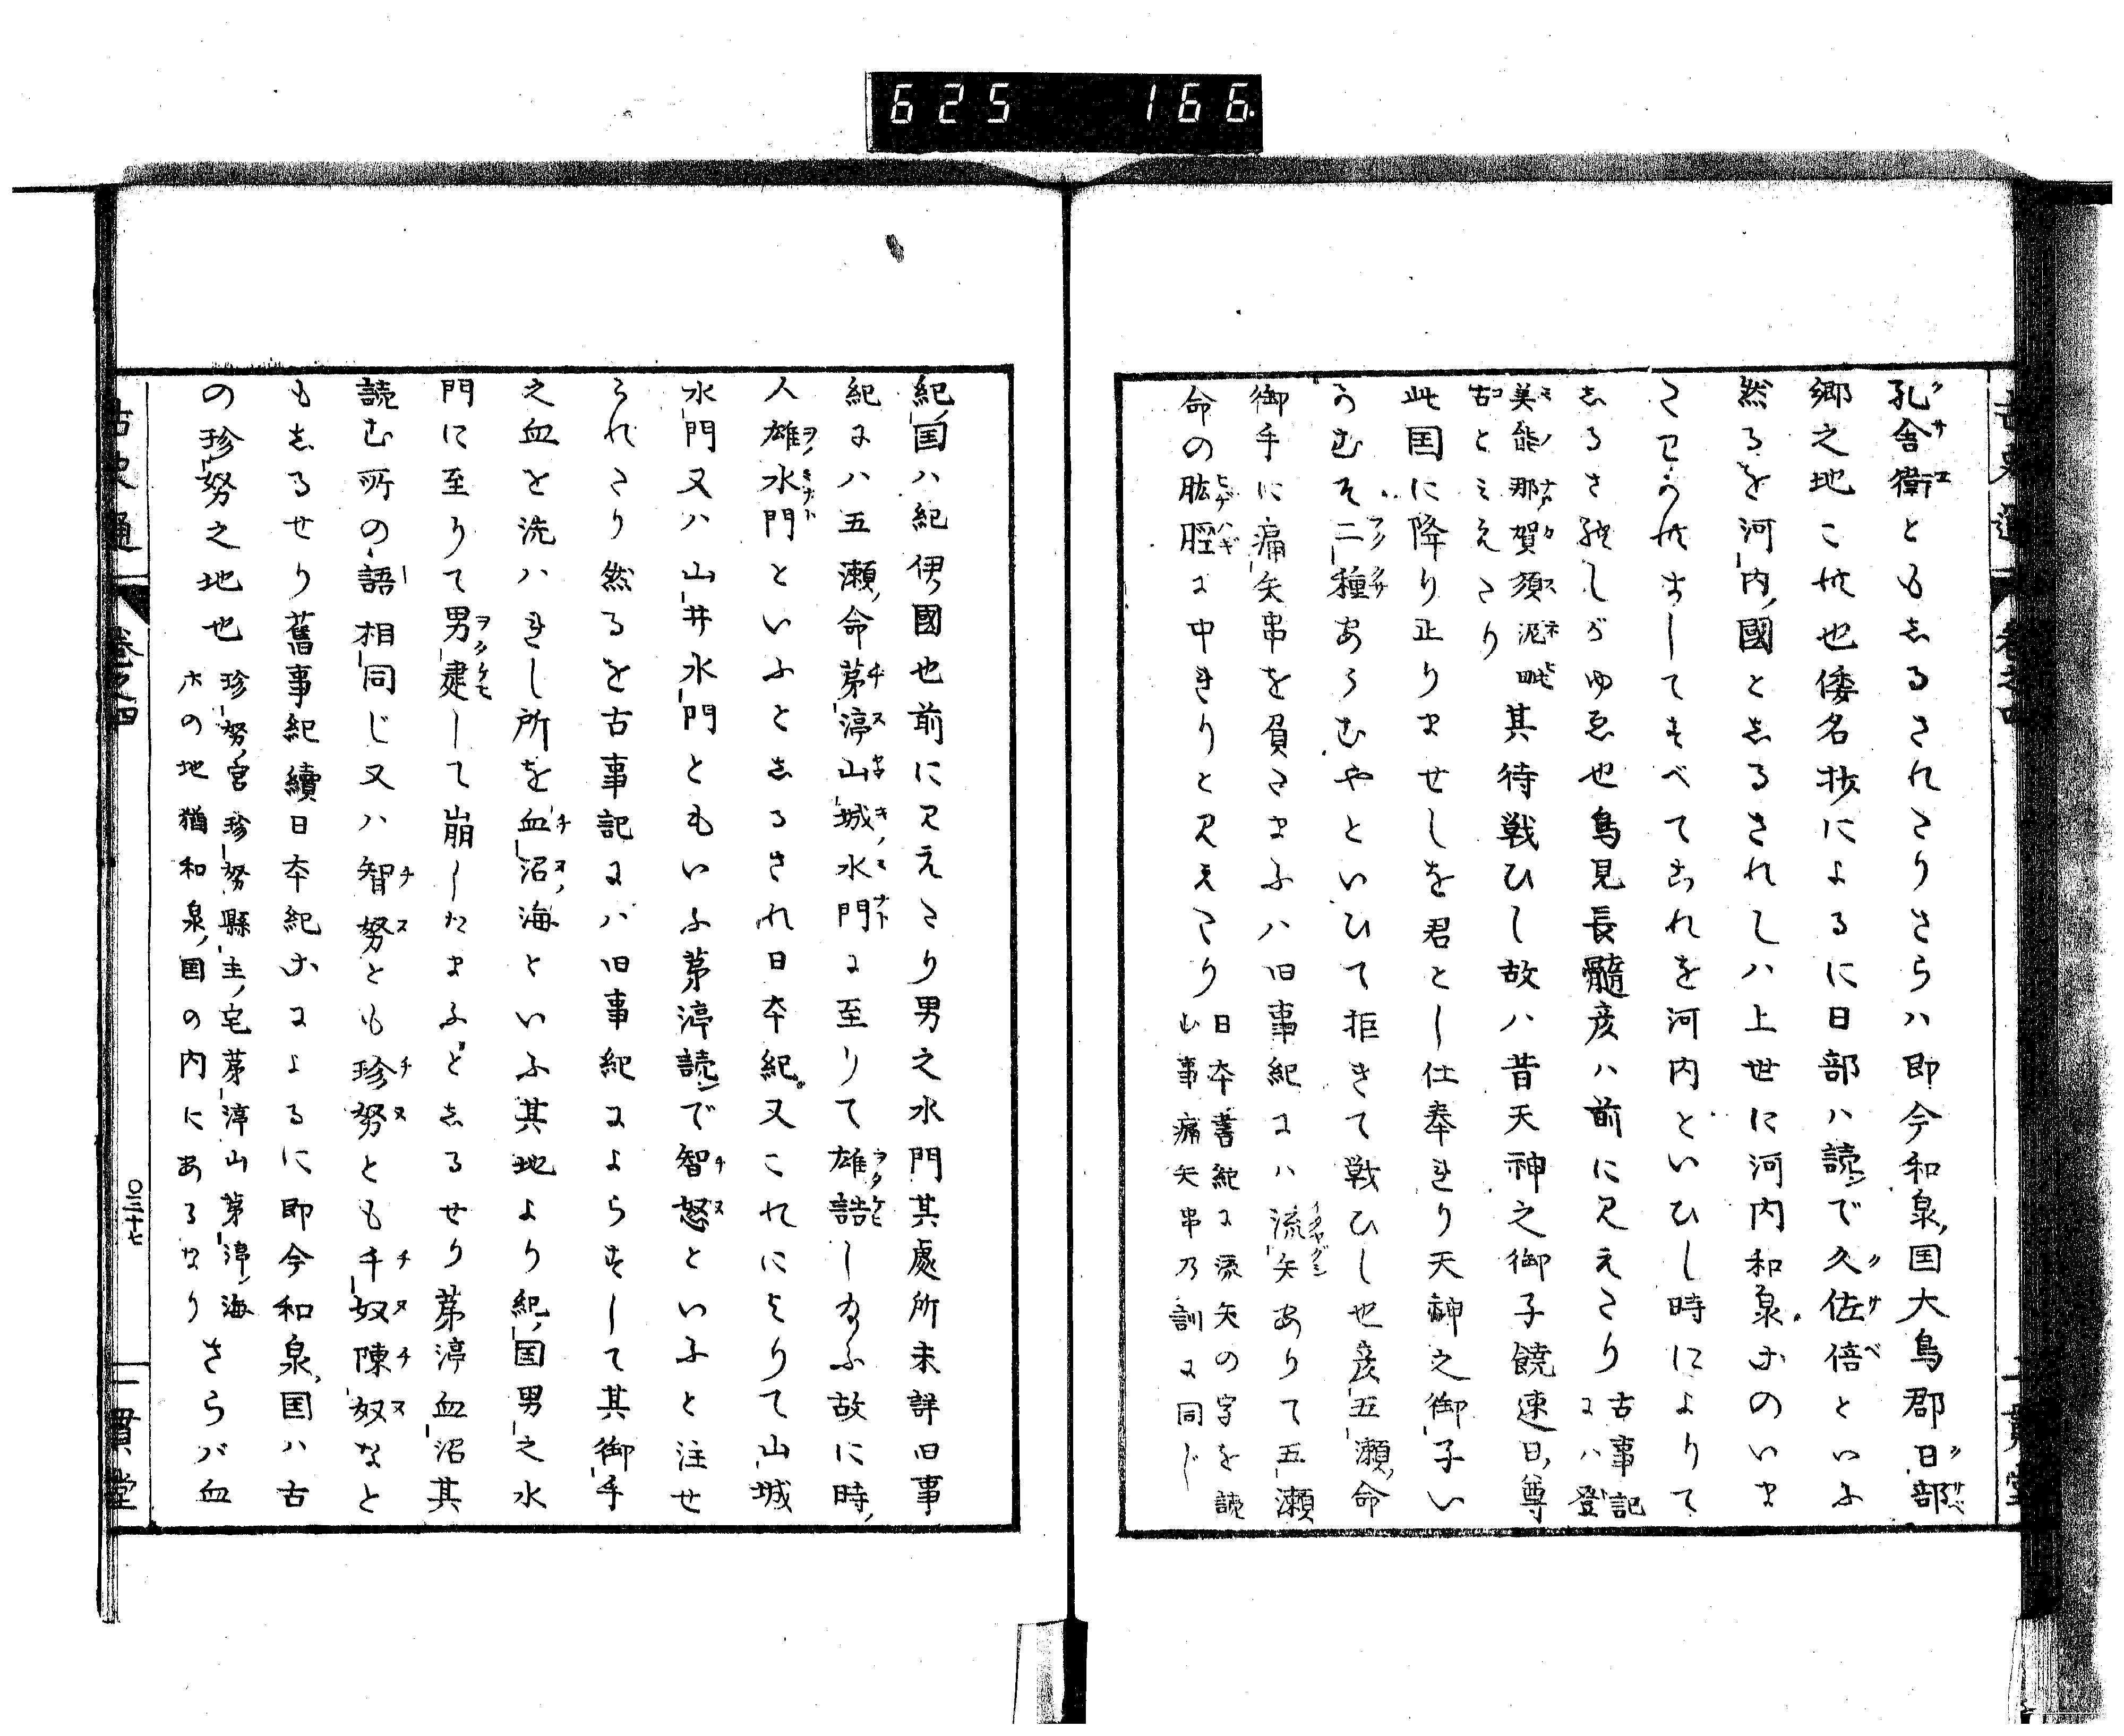 625 166.
孔舎衛ともしるされたりさらハ即今和泉国大鳥郡日部
郷之地これ也倭名抄によるに日部ハ読で久佐倍といふ
然るを河内國としるされしハ上世に河内和泉等のいま
たわかれすしてすべてこれを河内といひし時によりて
しるされしがゆゑ也鳥見長髄彦ハ前に見えたり古事記
にハ登
美能那賀須泥毗
古とみえたり
其待戦ひし故ハ昔天神之御子饒速日尊
此国に降り止りませしを君とし仕奉れり天神之御子い
かむそ二種あらむやといひて拒きて戦ひし也彦五瀬命
御手に痛矢串を負たまふハ旧事紀にハ流矢ありて五瀬
命の肱脛に中れりと見えたり
日本書紀に流矢の字を読
む事痛矢串乃訓に同じ
紀国ハ紀伊國也前に見えたり男之水門其處所未詳旧事
紀にハ五瀬命茅渟山城水門に至りて雄誥したまふ故に時
人雄水門といふとしるされ日本紀又これによりて山城
水門又ハ山井水門ともいふ茅渟読で智怒といふと注せ
られたり然るを古事記にハ旧事紀によらすして其御手
之血を洗ハれし所を血沼海といふ其地より紀国男之水
門に至りて男建して崩したまふとしるせり茅渟血沼其
読む所の語相同じ又ハ智努とも珍努とも千奴陳奴なと
もしるせり舊事紀續日本紀等によるに即今和泉国ハ古
の珍努之地也
珍努宮珍努縣主宅茅渟山茅渟海
ホの地猶和泉国の内にあるなり
さらバ血
古史通
巻之四
〇三十七
一貫堂